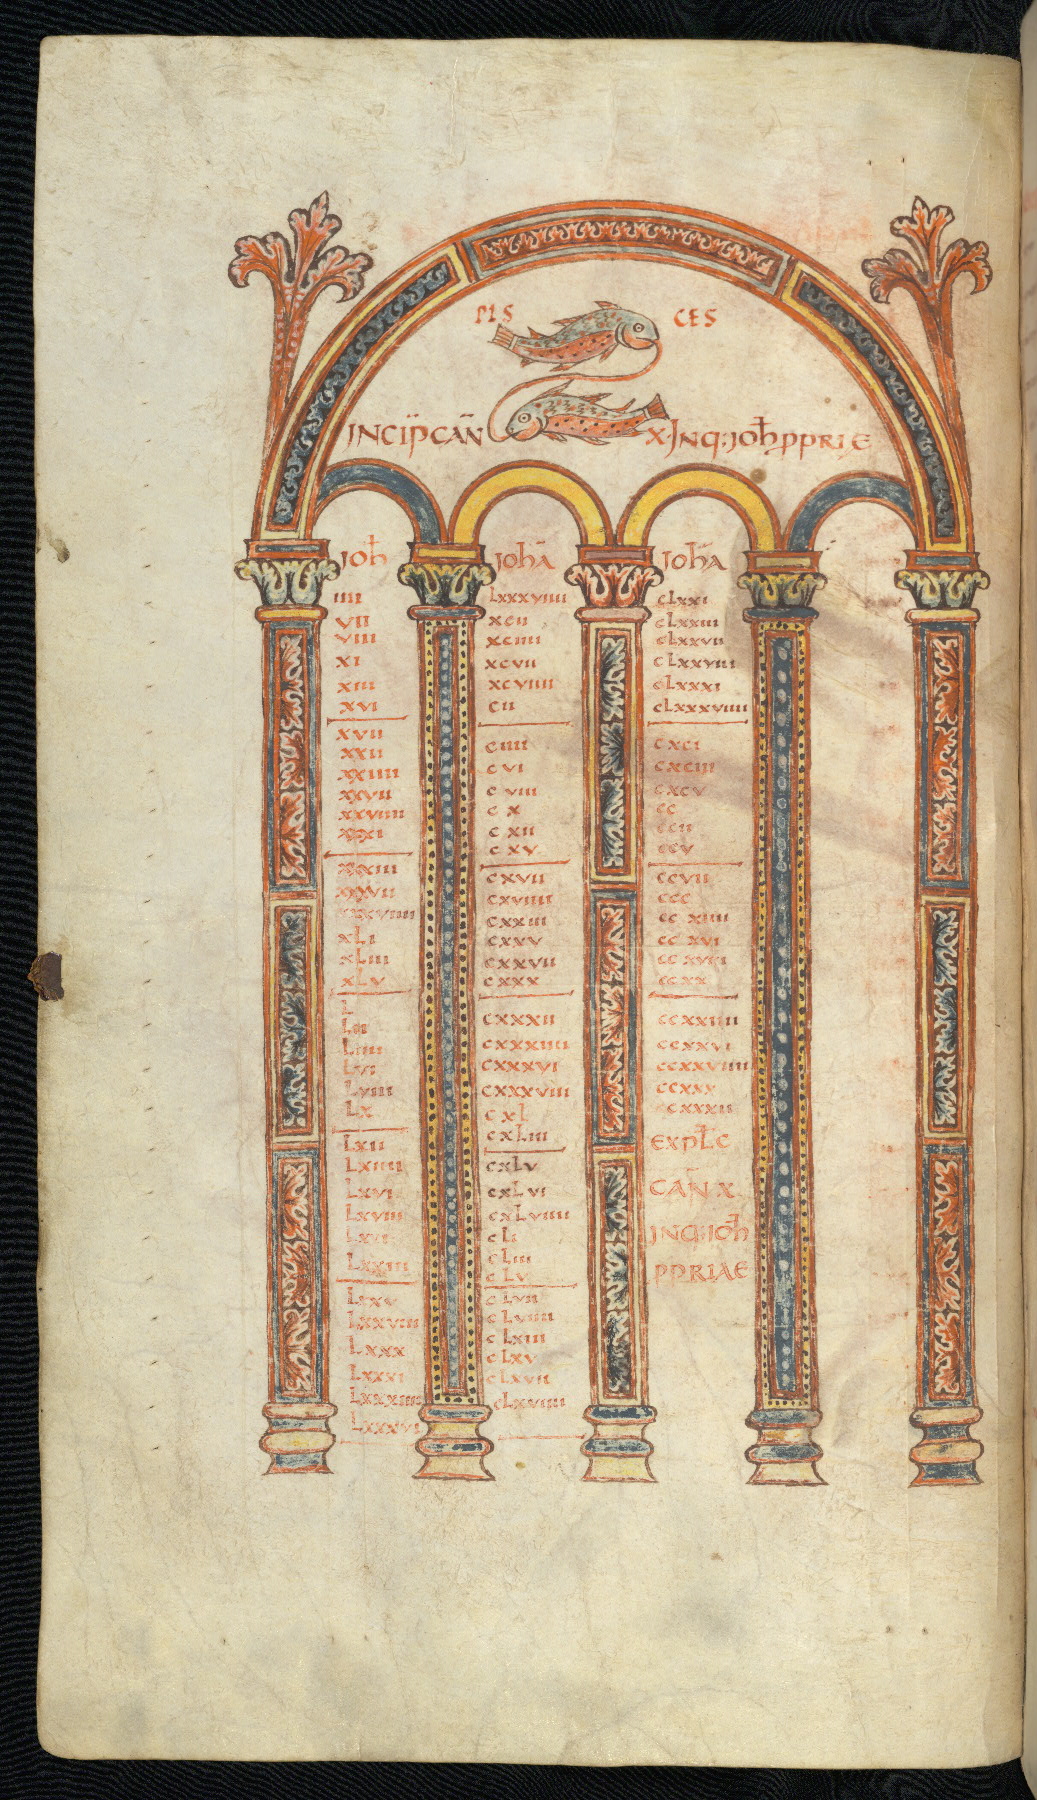 PIS CES
INCIP CAN X·INQ:IOH PPRIE
IOH
IIII
VII
VIIII
XI
XIII
XVI
XVII
XXII
XXIIII
XXVII
XXVIIII
XXXI
XXXIII
XXXVII
XXXVIIII
XLI
XLIII
XLV
L
LII
LIIII
LVI
LVIIII
LX
LXII
LXIIII
LXVI
LXVIII
LXXI
LXXIII
LXXV
LXXVIIII
LXXX
LXXXI
LXXXIIII
LXXXVI
IOHA
LXXXVIIII
XCII
XCIIII
XCVII
XCVIIII
CII
CIIII
CVI
CVIII
CX
CXII
CXV
CXVII
CXVIIII
CXXIII
CXXV
CXXVII
CXXX
CXXXII
CXXXIIII
CXXXVI
CXXXVIII
CXL
CXLIII
CXLV
CXLVI
CXLVIIII
CLI
CLIII
CLV
CLVII
CLVIIII
CLXIII
CLXV
CLXVII
CLXVIIII
IOHA
CLXXI
CLXXIII
CLXXVII
CLXXVIIII
CLXXXI
CLXXXVIIII
CXCI
CXCIII
CXCV
CC
CCII
CCV
CCVII
CCC
CCXIIII
CCXVI
CCXVIII
CCXX
CCXXIIII
CCXXVI
CCXXVIIII
CCXXX
CCXXXII
EXPLC
CAN X
INQ:IOH
PPRIAE